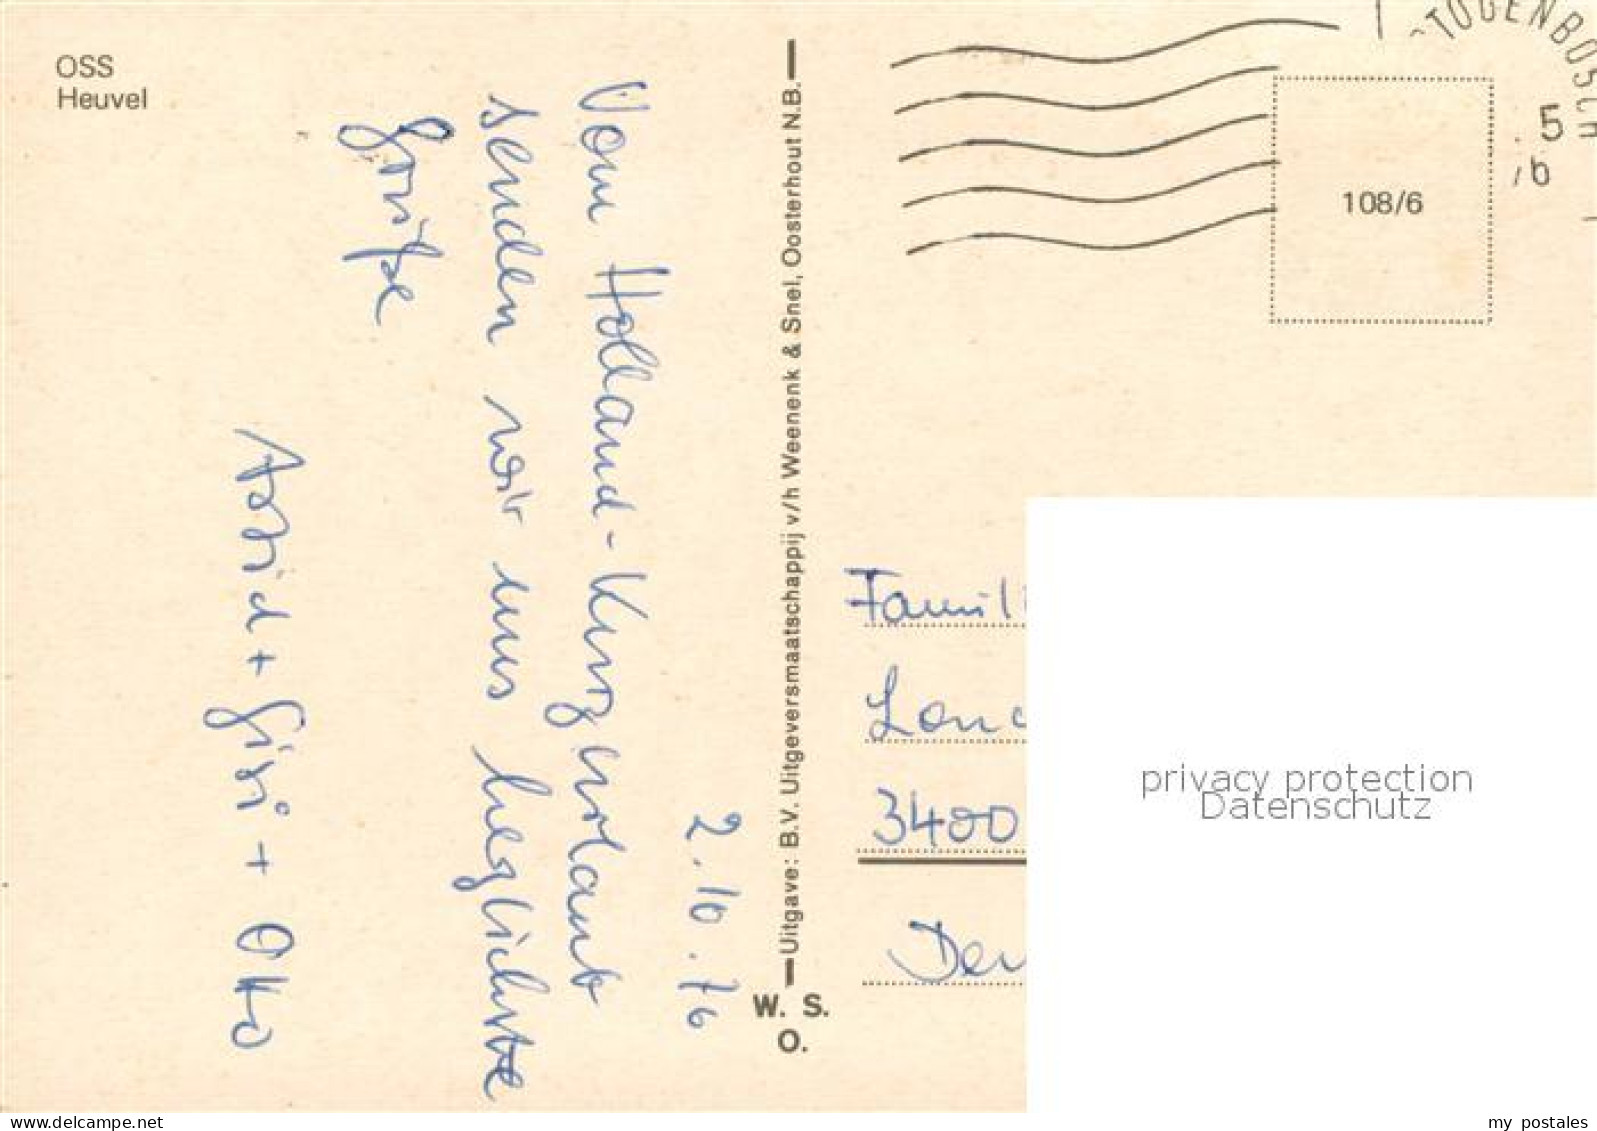 OSS
Heuvel
2.10.76
Vom Holland-Kurzurlaub
senden wir uns herzlichste
Grüße
Astrid + Gisi + Otto
Uitgave: B.V. Uitgeversmaatschappij v/h Weenenk & Snel, Oosterhout N.B.
W. S.
O.
TOGENBOSCH
5
108/6
Famili
Lon
3400
Deu
privacy protection
Datenschutz
www.delcampe.net
my_postales